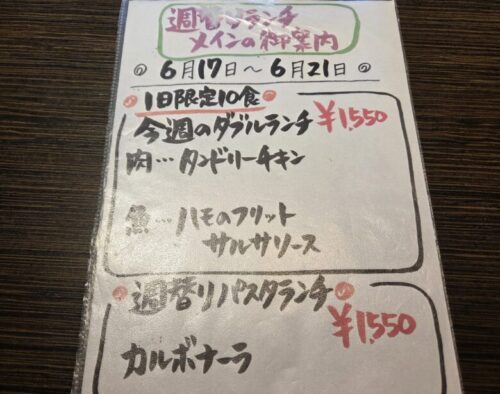 週替りランチ
メインの御案内
6月17日～6月21日
1日限定10食
今週のダブルランチ ¥1,550
肉…タンドリーチキン
魚…ハモのフリット
サルサソース
週替りパスタランチ
¥1,550
カルボナーラ